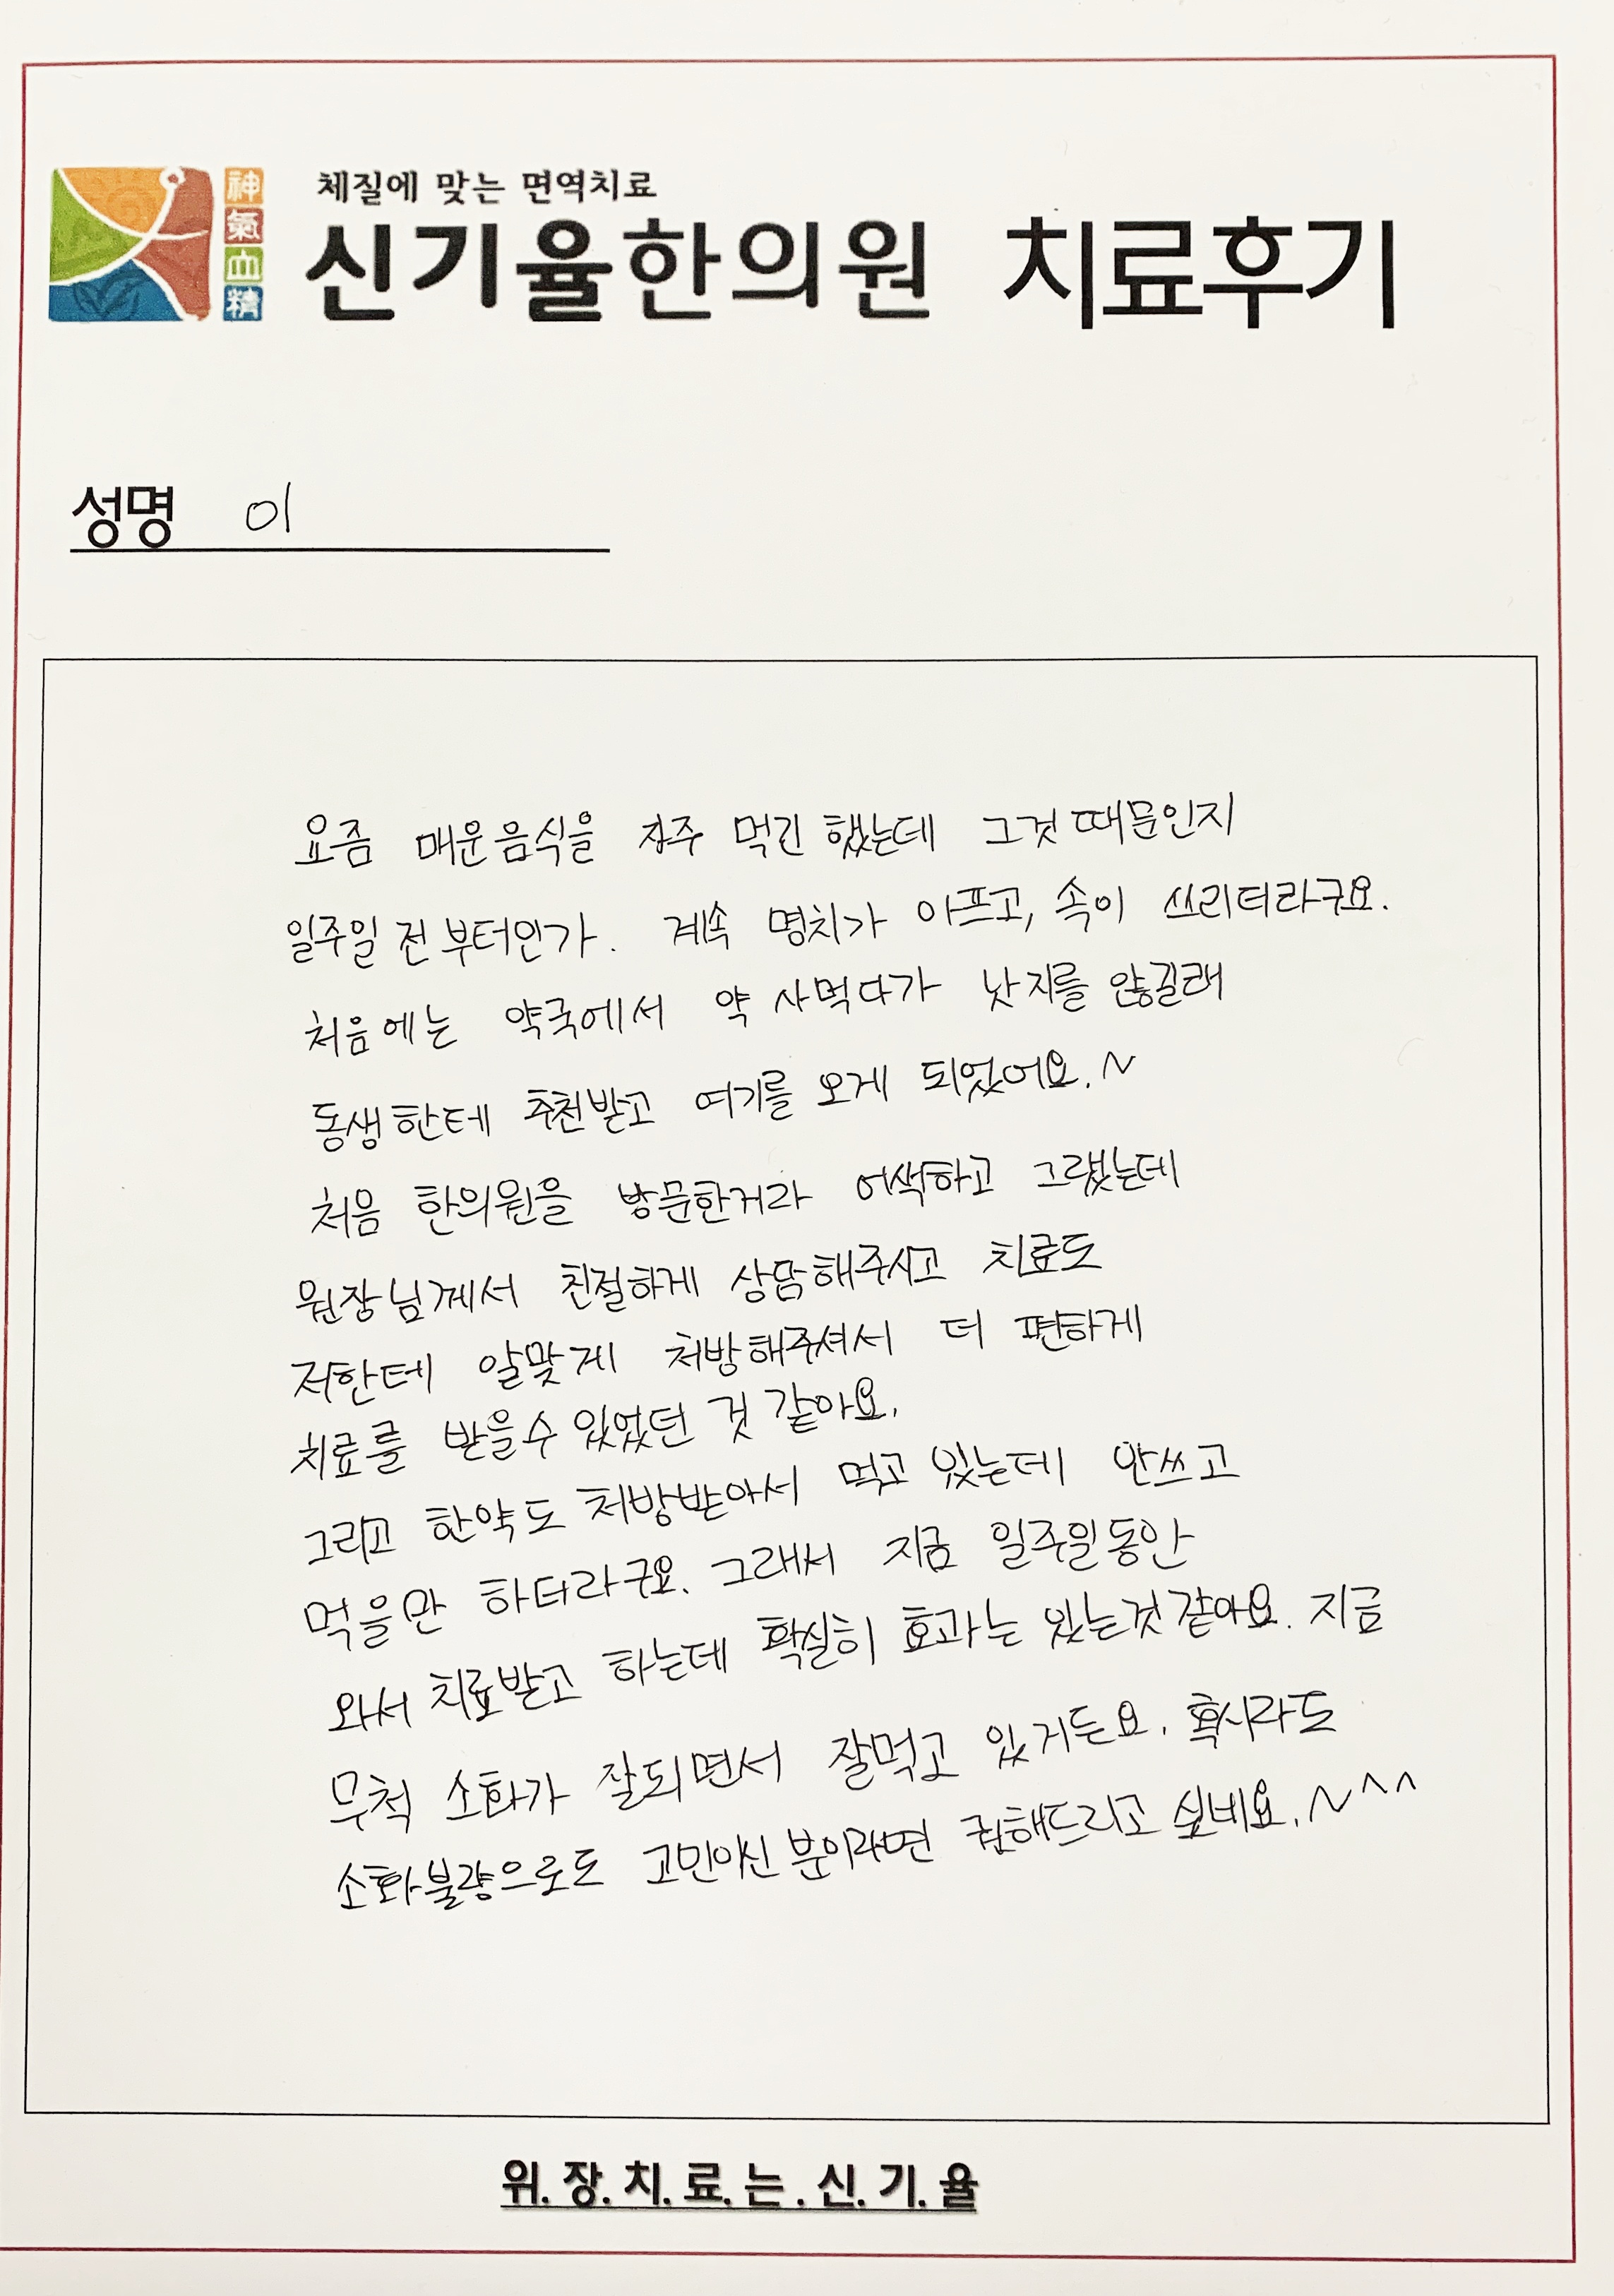 체질에 맞는 면역치료
神氣血精
신기율한의원 치료후기
성명 이
요즘 매운음식을 자주 먹긴 했는데 그것 때문인지
일주일 전 부터인가. 계속 명치가 아프고, 속이 쓰리더라구요.
처음에는 약국에서 약 사먹다가 낫지를 않길래
동생한테 추천받고 여기를 오게 되었어요.~
처음 한의원을 방문한거라 어색하고 그랬는데
원장님께서 친절하게 상담해주시고 치료도
저한테 알맞게 처방해주셔서 더 편하게
치료를 받을수 있었던 것 같아요.
그리고 한약도 처방받아서 먹고 있는데 안쓰고
먹을만 하더라구요. 그래서 지금 일주일동안
와서 치료받고 하는데 확실히 효과는 있는것같아요. 지금
무척 소화가 잘되면서 잘먹고 있거든요. 혹시라도
소화불량으로도 고민이신 분이라면 권해드리고 싶네요.~^^
위.장.치.료.는.신.기.율